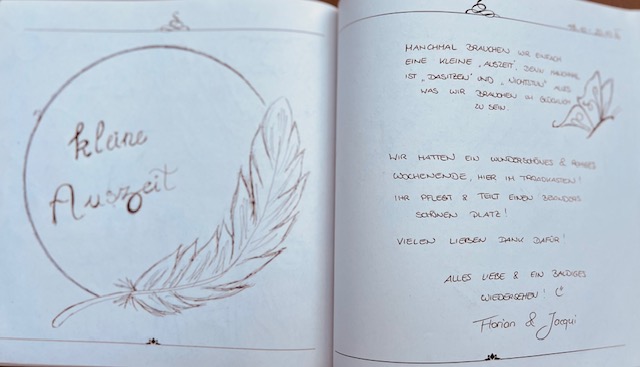 kleine
Auszeit
MANCHMAL BRAUCHEN WIR EINFACH
EINE KLEINE „AUSZEIT", DENN MANCHMAL
IST „DASITZEN" UND „NICHTSTUN" ALLES
WAS WIR BRAUCHEN UM GLÜCKLICH
ZU SEIN.
WIR HATTEN EIN WUNDERSCHÖNES &
WOCHENENDE, HIER IM TROADKASTEN!
IHR PFLEGT & TEILT EINEN BESONDERS
SCHÖNEN PLATZ!
VIELEN LIEBEN DANK DAFÜR!
ALLES LIEBE & EIN BALDIGES
WIEDERSEHEN!
Florian & Jacqui